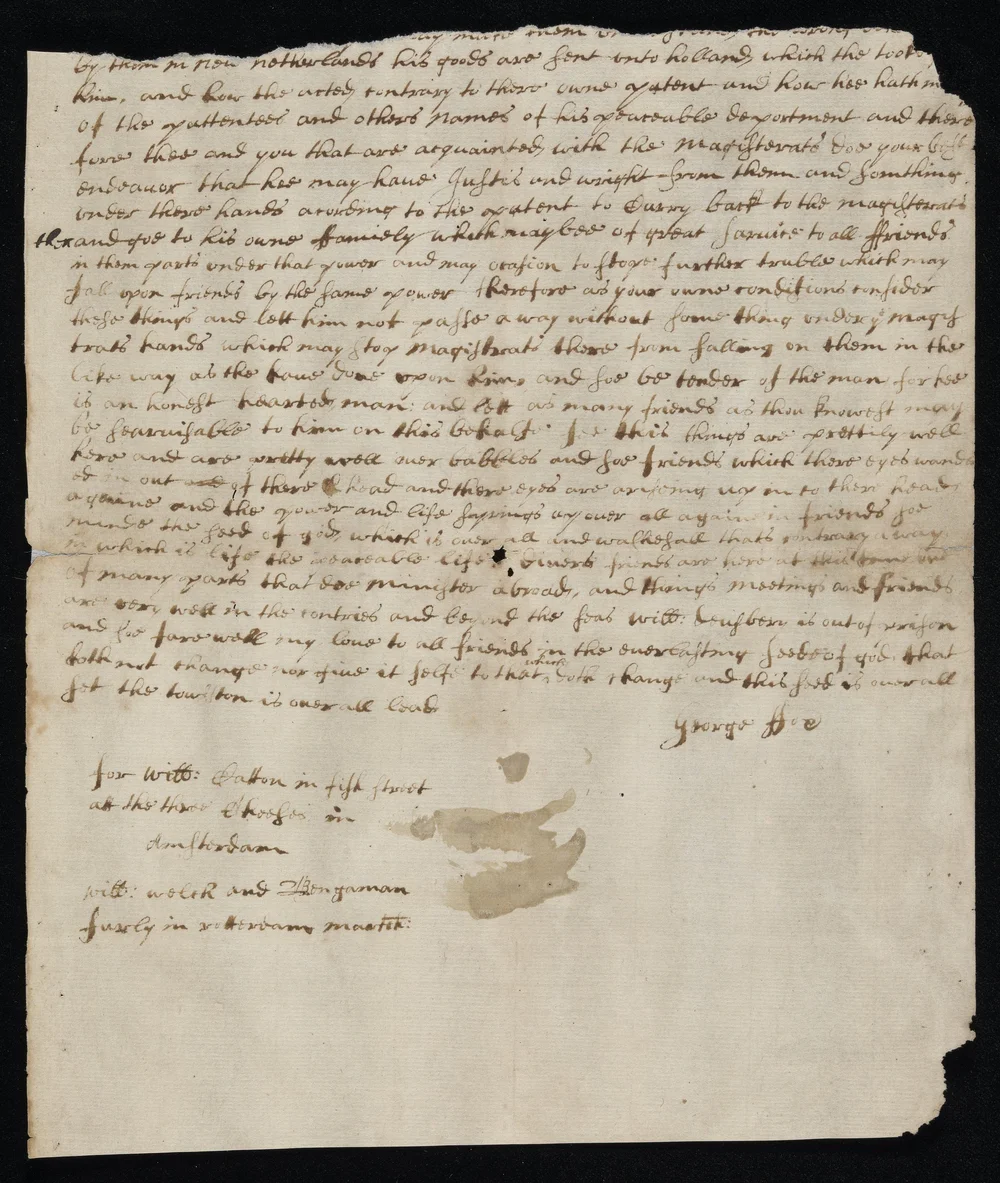 made them
by them in new netherlands his goods are sent unto holland which the tooke
him, and how the acted contrary to there owne patent and how hee hath
of the pattentees and others names of his peaceable deportment and there
fore thee and you that are acquainted with the magisterats doe your best
endeavor that hee may have Justis and wright from them and somthing
under there hands acording to the patent to Carry back to the magisterats
ther and goe to his owne ffamiely which may bee of great sarvice to all ffriends
in them parts under that power and may ocasion to stope further truble which may
fall upon friends by the same power therefore as your owne conditions consider
these things and lett him not passe a way without some thing under ye magis
trats hands which may stop magistrats there from falling on them in the
like way as the have done upon him and soe be tender of the man for hee
is an honest hearted man: and lett as many friends as thou knowest may
be searvisable to him on this behalfe see this things are prettily well
here and are pretty well over babbles and soe friends which there eyes wandr
ed in out of there head and there eyes are arising up in to there heads
againe and the power and life springs up over all againe in friends soe
minde the seed of god which is over all and walke shall thats contrary away
in which is life the peaceable life divers friends are here at this time
of many parts that doe minister abroad, and things meetings and friends
are very well in the contries and beyond the seas will: deusbery is out of prison
and soe fare well my love to all friends in the everlasting seede of god, that
doth not change nor give it selfe to that which doth change and this seed is over all
set the towston is over all lead
George ffox
for will: Catton in fish street
att the three Cheeses in
Amsterdam
will: welch and Bengaman
furly in rotterdam march: